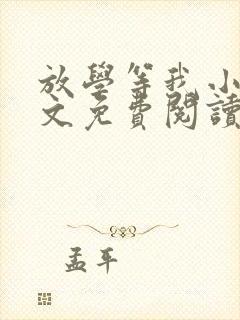 放學等我 小
文免費閱讀
孟平